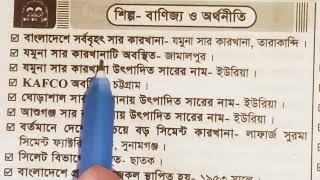 শিল্প- বাণিজ্য ও অর্থনীতি
বাংলাদেশে সর্ববৃহৎ সার কারখানা- যমুনা সার কারখানা, তারাকান্দি।
যমুনা সার কারখানাটি অবস্থিত- জামালপুর।
যমুনা সার কারখানায় উৎপাদিত সারের নাম- ইউরিয়া।
KAFCO চট্টগ্রাম।
ঘোড়াশাল সার উৎপাদিত সারের নাম- ইউরিয়া।
আশুগঞ্জ সার উৎপাদিত সারের নাম- ইউরিয়া।
বর্তমানে বড় সিমেন্ট কারখানা- লাফার্জ সুরমা
সিমেন্ট সুনামগঞ্জ।
সিলেট ছাতক।
বাংলাদেশে স্থাপিত হয়- ১৯৫৩ সালে।